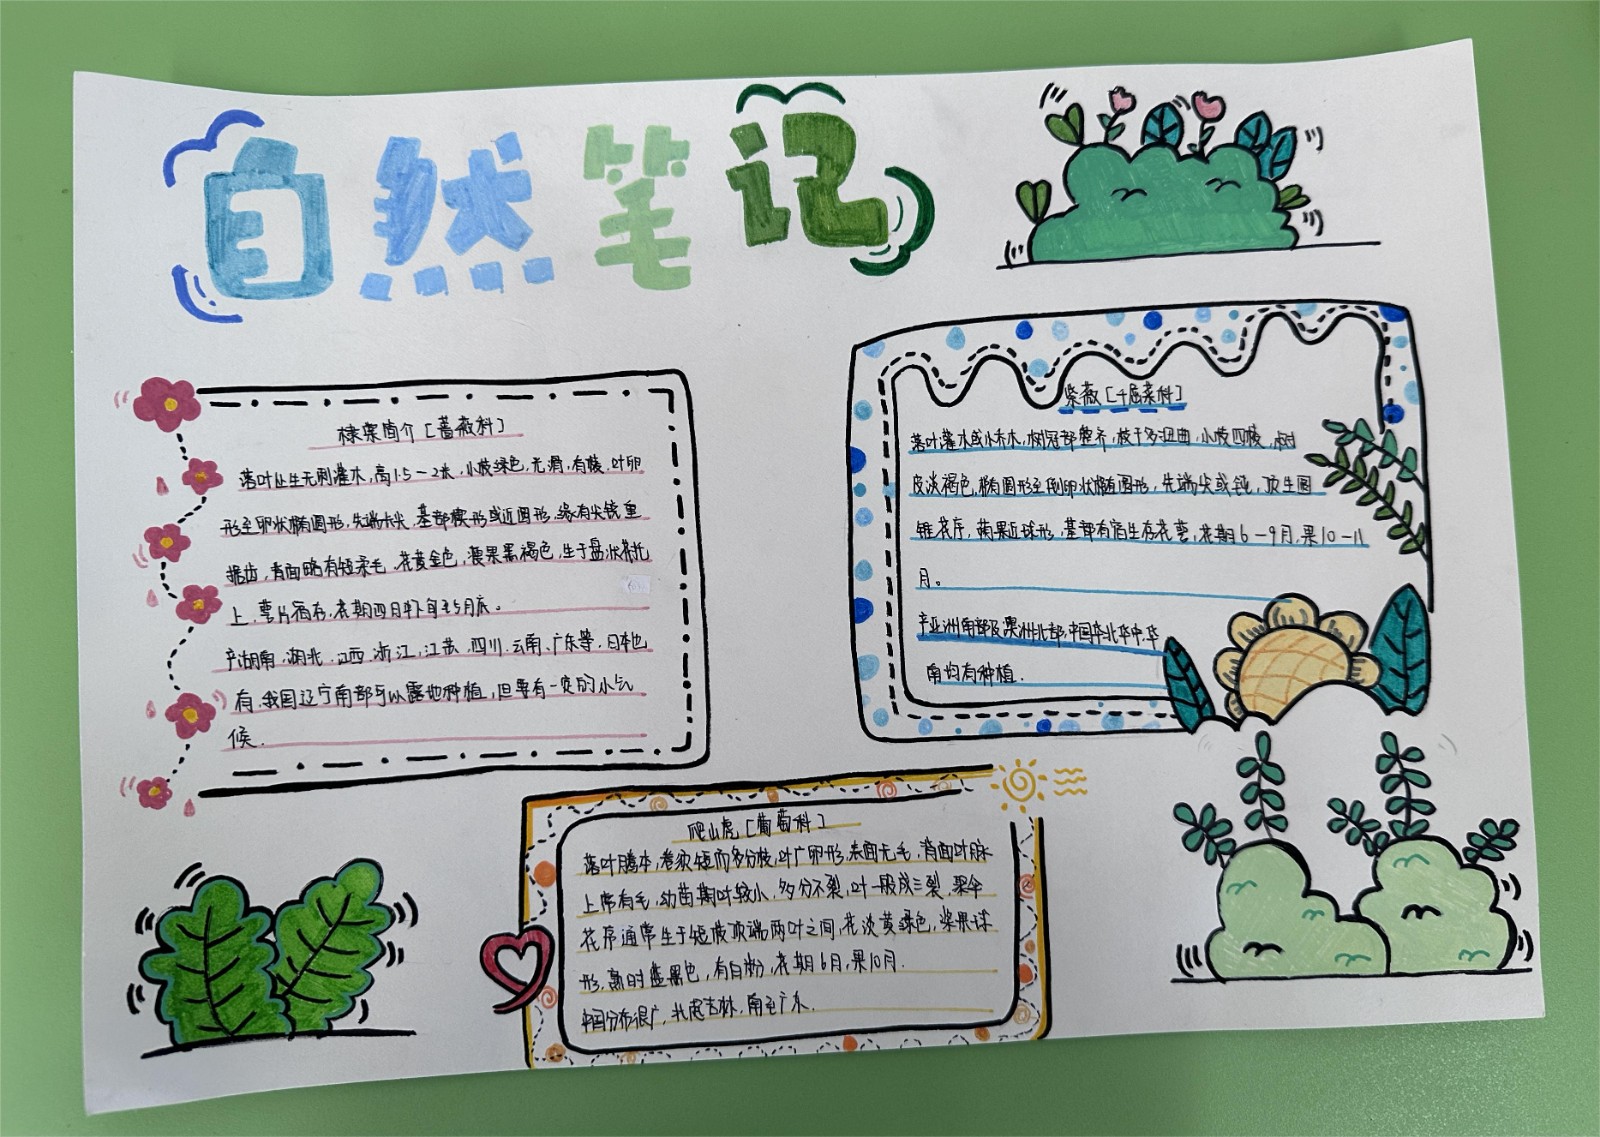 自然笔记
棣棠简介［蔷薇科］
落叶丛生无刺灌木，高1.5－2米，小枝绿色，无滑，有棱，叶卵
形至卵状椭圆形，先端长尖，基部楔形或近圆形，缘有尖锐重
锯齿，背面略有短柔毛，花黄金色，瘦果黑褐色，生于盘状花托
上，萼片宿存，花期四月下旬至5月底。
产湖南、湖北、江西、浙江、江苏、四川、云南、广东等，日本也
有，我国辽宁南部可以露地种植，但要有一定的小气
候.
紫薇［千屈菜科］
落叶灌木或小乔木，树冠部整齐，枝干多扭曲，小枝四棱，树
皮淡褐色，椭圆形至倒卵状椭圆形，先端尖或钝，顶生圆
锥花序，蒴果近球形，基部有宿生存花萼，花期6－9月，果10－11
月。
产亚洲南部及澳洲北部，中国华北华中、华
南均有种植.
爬山虎［葡萄科］
落叶腾本，卷须短而多分枝，叶广卵形，表面无毛，背面叶脉
上常有毛，幼苗期叶较小，多分不裂，叶一般成三裂，聚伞
花序通常生于短枝顶端两叶之间，花淡黄绿色，浆果球
形，熟时蓝黑色，有白粉，花期6月，果10月.
中国分布很广，北起吉林，南至广东.